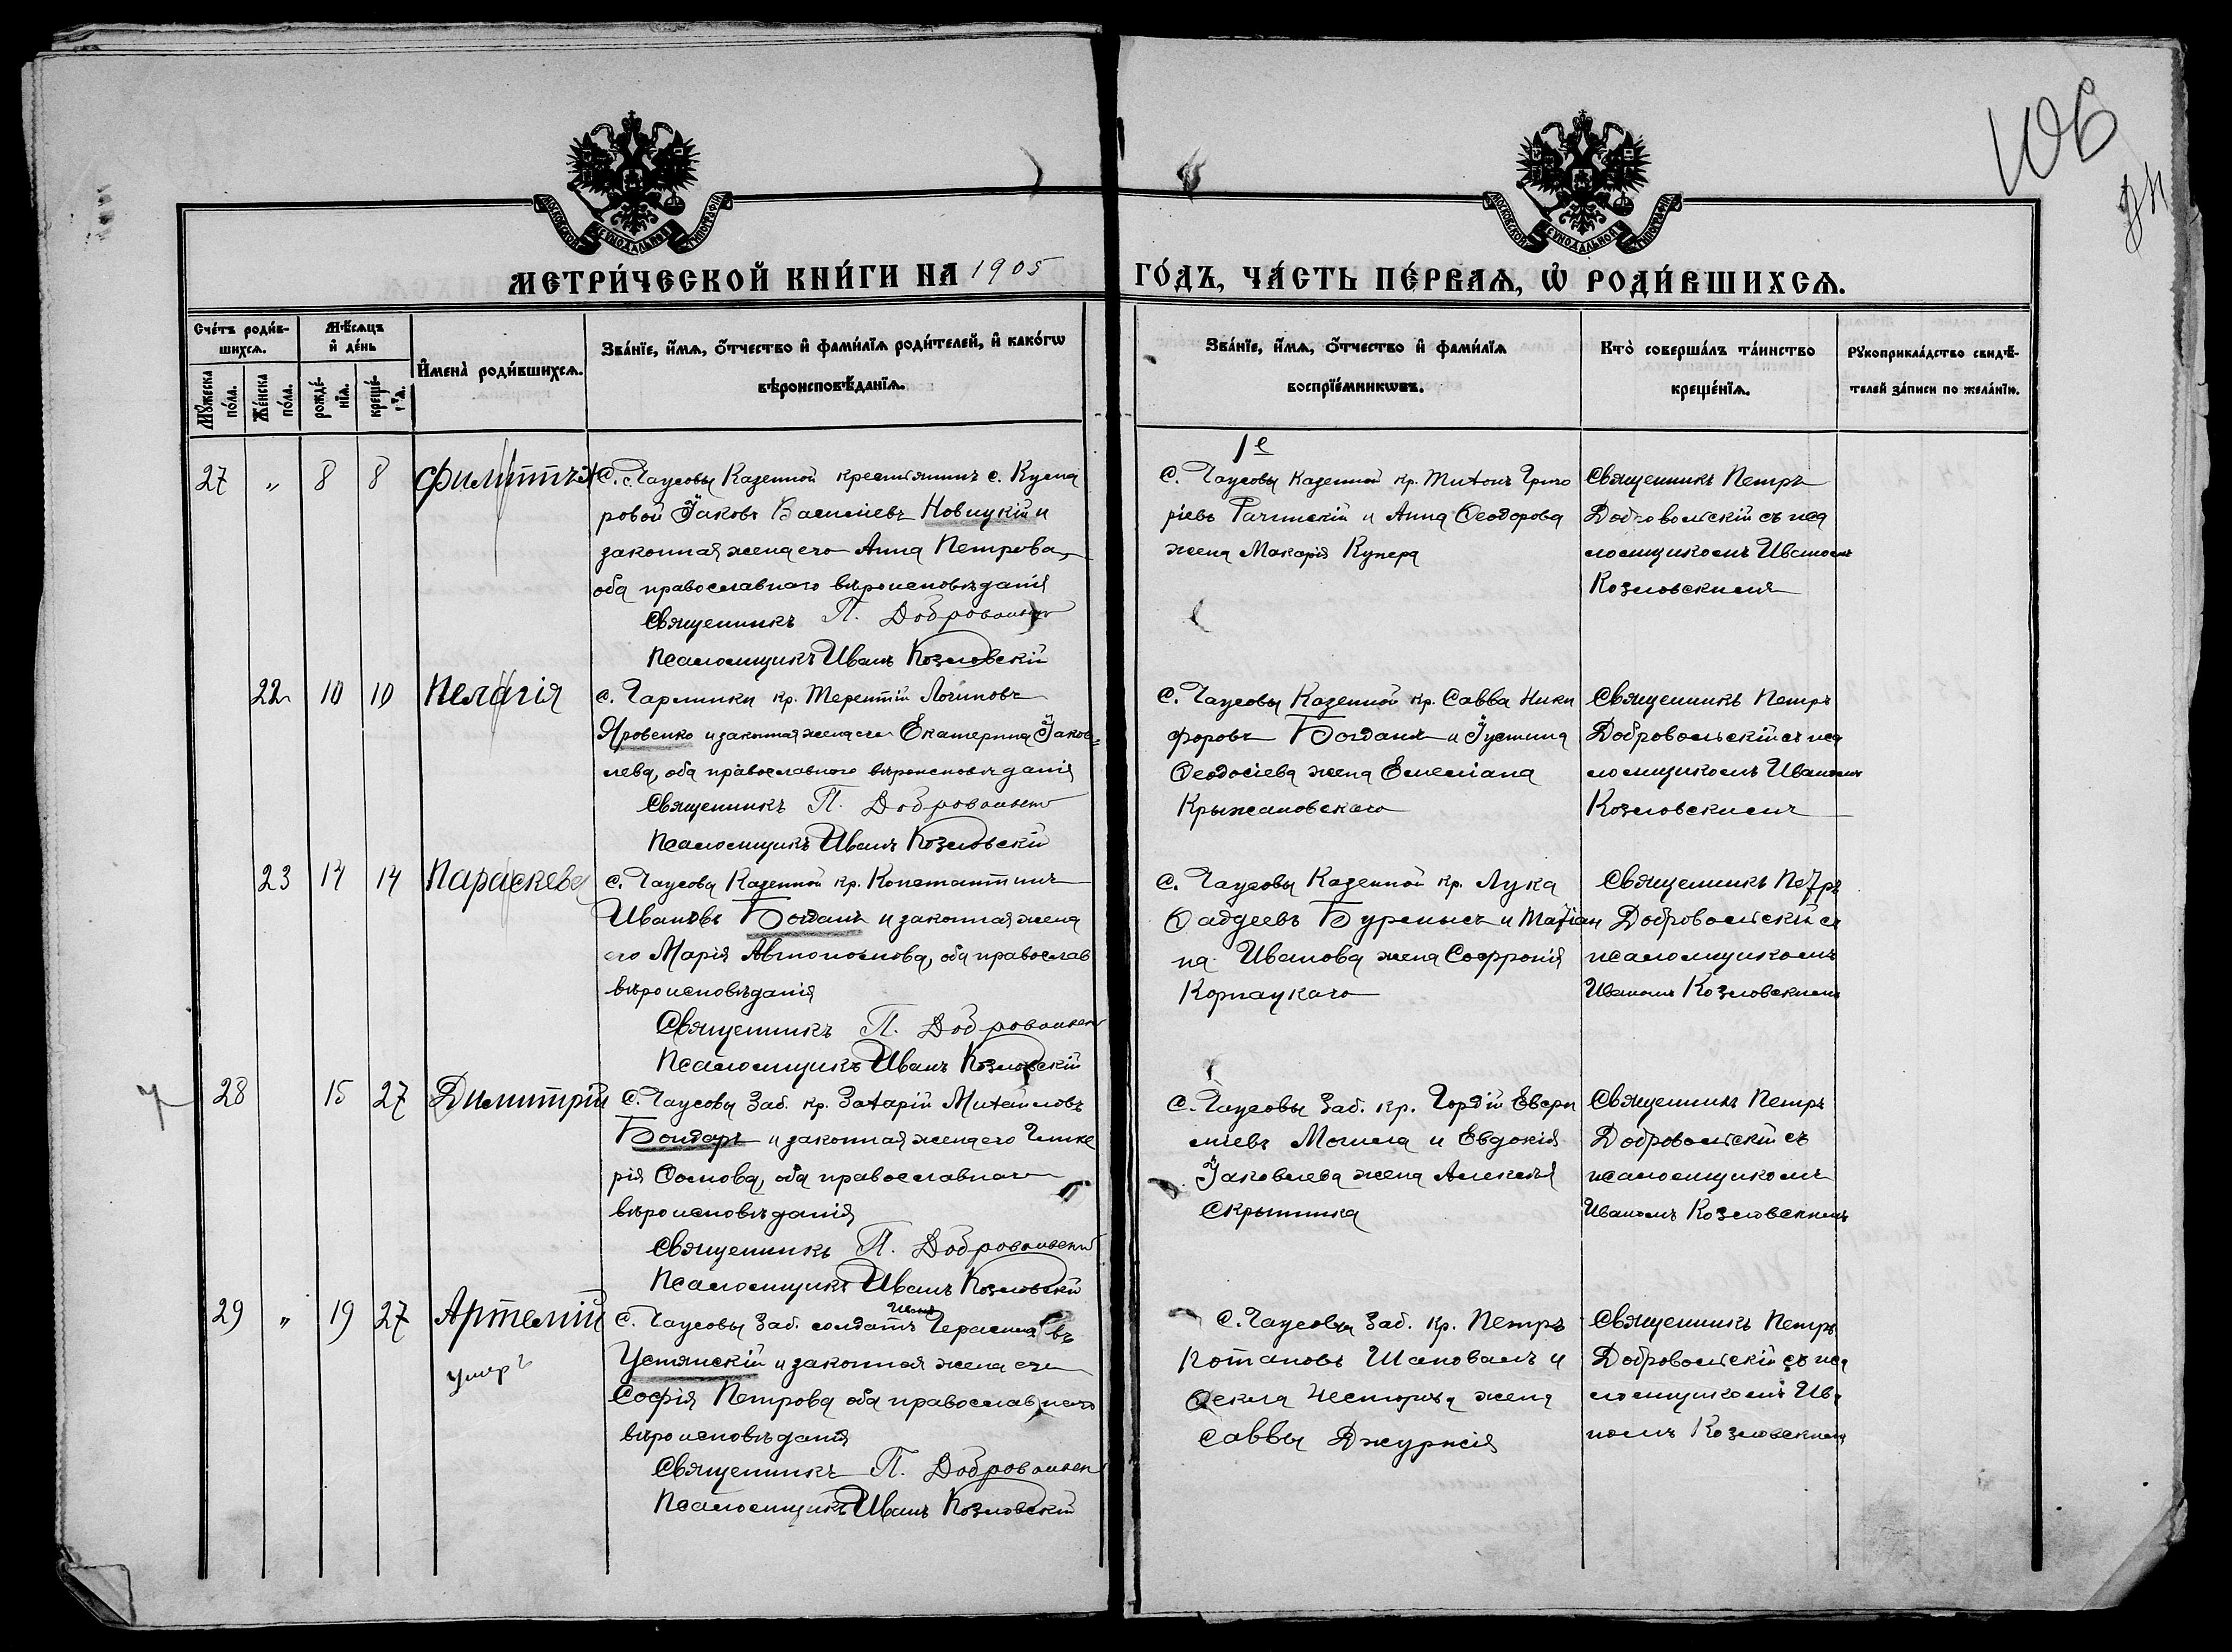 106
МОСКОВСКОЙ СѴНОДАЛЬНОЙ ТИПОГРАФІИ
МОСКОВСКОЙ СѴНОДАЛЬНОЙ ТИПОГРАФІИ
МЕТРИ́ЧЕСКОЙ КНИ́ГИ НА 1905
ГО́ДЪ, ЧА́СТЬ ПЕ́РВАѦ, Ѡ҆ РОДИ́ВШИХСѦ.
Сче́тъ роди́в-
шихсѧ.
Мѣ́сѧцъ
и҆ де́нь
Мꙋ́жеска
по́ла.
Же́нска
по́ла.
рожде́-
нїѧ.
креще́-
нїѧ.
И҆мена̀ роди́вшихсѧ.
Зва́нїе, и҆́мѧ, ѻ҆́тчество и҆ фами́лїѧ роди́телей, и҆ како́гѡ
вѣроисповѣ́данїѧ.
Зва́нїе, и҆́мѧ, ѻ҆́тчество и҆ фами́лїѧ
воспрїе́мникѡвъ.
Кто̀ соверша́лъ та́инство
креще́нїѧ.
Рꙋкоприкла́дство свидѣ́-
телей за́писи по жела́нїю.
27 " 8 8 Филиппъ
С. Чаусовы Казенной крестьянинъ с. Кусна
ровой Іаковъ Василіевъ Новицкій и
законная жена его Анна Петрова,
оба православнаго вѣроисповѣданія
Священникъ П. Добровольск
Псаломщикъ Иванъ Козловскій
С. Чаусовы Казенной кр. Тихонъ Григо
ріевъ Рачинскій и Анна Ѳеодорова
жена Макарія Кухера
Священникъ Петръ
Добровольскій съ пса
ломщикомъ Иваномъ
Козловскимъ
22 10 10 Пелагія
с. Чарлинки кр. Терентій Логиновъ
Яровенко и законная жена его Екатерина Іаков=
лева, оба православного вѣроисповѣданія
Священникъ П. Добровольск
Псаломщикъ Иванъ Козловскій
С. Чаусовы Казенной кр. Савва Ники
форовъ Богданъ и Іустина
Ѳеодосіева жена Емеліана
Крыжановскаго
Священникъ Петръ
Добровольскій съ пса
ломщикомъ Иваномъ
Козловскимъ
23 14 14 Параскева
с. Чаусова Казенной кр. Константинъ
Ивановъ Богданъ и законная жена
его Марія Автономова, оба православ
вѣроисповѣданія
Священникъ П. Добровольск
Псаломщикъ Иванъ Козловскій
С. Чаусовы Казенной кр. Лука
Ѳаддеевъ Бурлысъ и Татіан
на Иванова жена Софронія
Корпацкаго
Священникъ Петръ
Добровольскій съ
псаломщикомъ
Иваномъ Козловскимъ
28 15 27 Димитрій
С. Чаусовы Заб. кр. Захарій Михайловъ
Бондарь и законная жена его Глике
рія Ѳомова, оба православнаго
вѣроисповѣданія
Священникъ П. Добровольскій
Псаломщикъ Иванъ Козловскій
С. Чаусовы Заб. кр. Гордій Евфи
міевъ Могила и Евдокія
Іаковлева жена Алексѣя
Скрыпника
Священникъ Петръ
Добровольскій съ
псаломщикомъ
Иваномъ Козловскимъ
29 " 19 27 Артемій
умеръ
С. Чаусовы Заб. солдатъ Герасимовъ
Устянскій и законная жена его
Софія Петрова оба православнаго
вѣроисповѣданія
Священникъ П. Добровольск
Псаломщикъ Иванъ Козловскій
С. Чаусовы Заб. кр. Петръ
Потаповъ Шаповалъ и
Ѳекла Несторова жена
Саввы Джуржія
Священникъ Петръ
Добровольскій съ пса
ломщикомъ Ива
номъ Козловскимъ